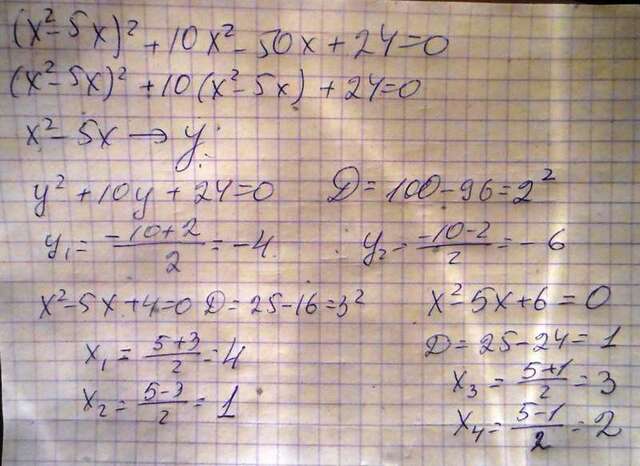 (x²-5x)²+10x²-50x+24=0
(x²-5x)²+10(x²-5x)+24=0
x²-5x→y
y²+10y+24=0 D=100-96=2²
y₁=(-10+2)/2=-4 y₂=(-10-2)/2=-6
x²-5x+4=0 D=25-16=3² x²-5x+6=0
D=25-24=1
x₁=(5+3)/2=4 x₃=(5+1)/2=3
x₂=(5-3)/2=1 x₄=(5-1)/2=2